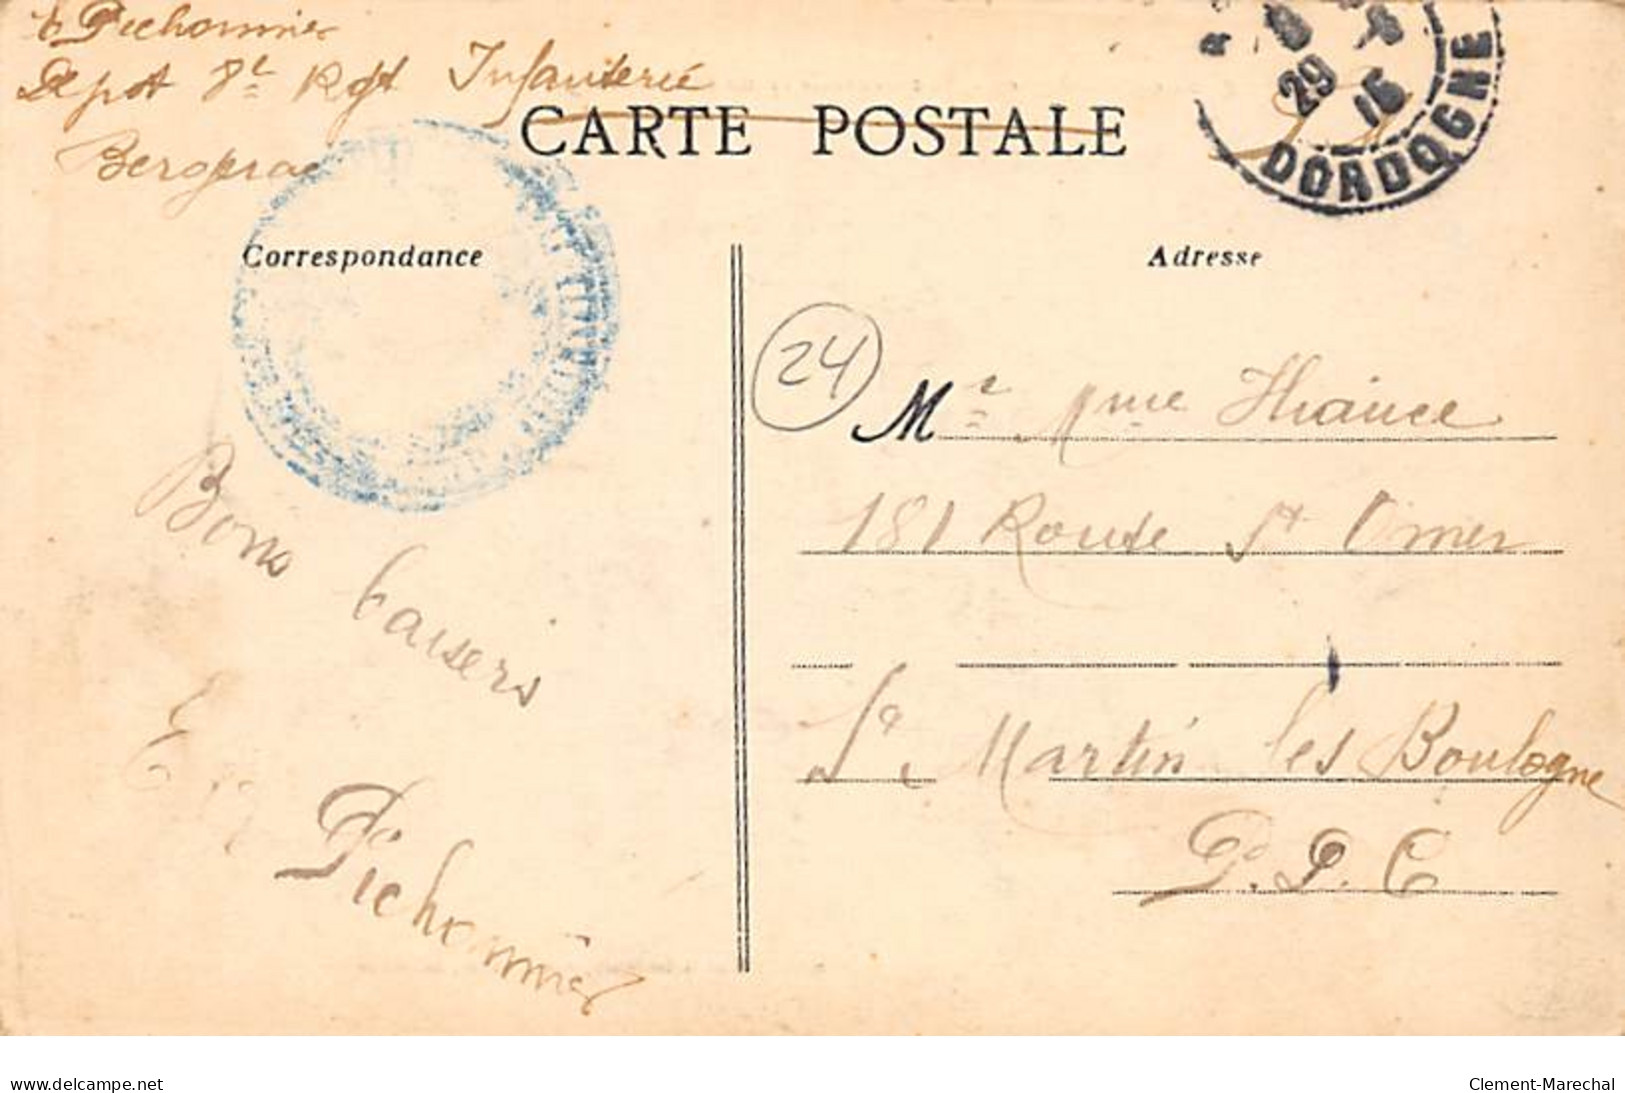 E Pichonnier
Depot 8e Rgt Infanterie
Bergerac
CARTE POSTALE
29
15
DORDOGNE
Correspondance
Adresse
24
Mr Mme Hiance
181 Route St Omer
St Martin les Boulogne
P. D. C
Bons baisers
E
Pichonnier
delcampe.net
Clement-Marechal